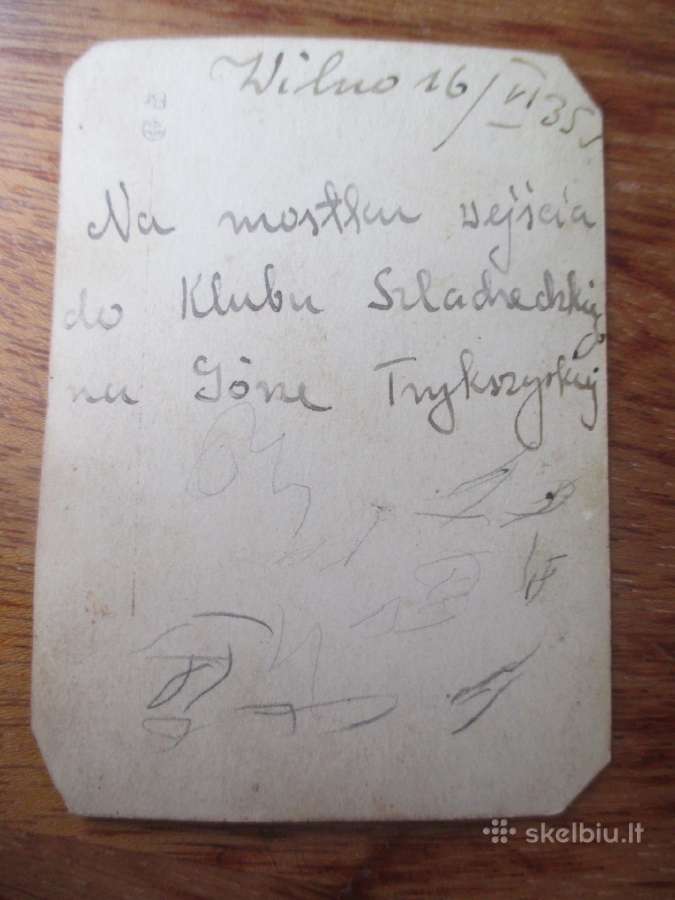 Wilno 16/VI 35
Na mostku wejścia
do Klubu Szlacheckiego
na Górze
skelbiu.lt